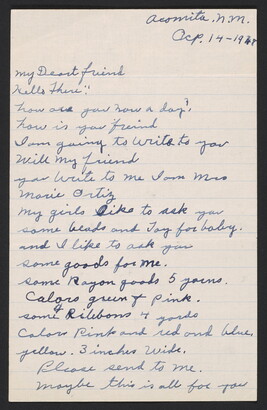 Acomita, N.M.
Ocp. 14-19
My Deart friend
Hello there!!
how are you now a day?
how is you freind
I am going to Write to you
Will My friend
you Write to Me I am Mrs
Marie Ortiz
My girls like to ask you
some beads and Toy for baby.
and I like to ask you
some goods for me.
some Rayon goods 5 yarns.
Calors green & Pink.
some Ribbons 4 yards
Calors Pink and red and blue
yellow. 3 inches Wide.
Please send to me.
Maybe this is all for you